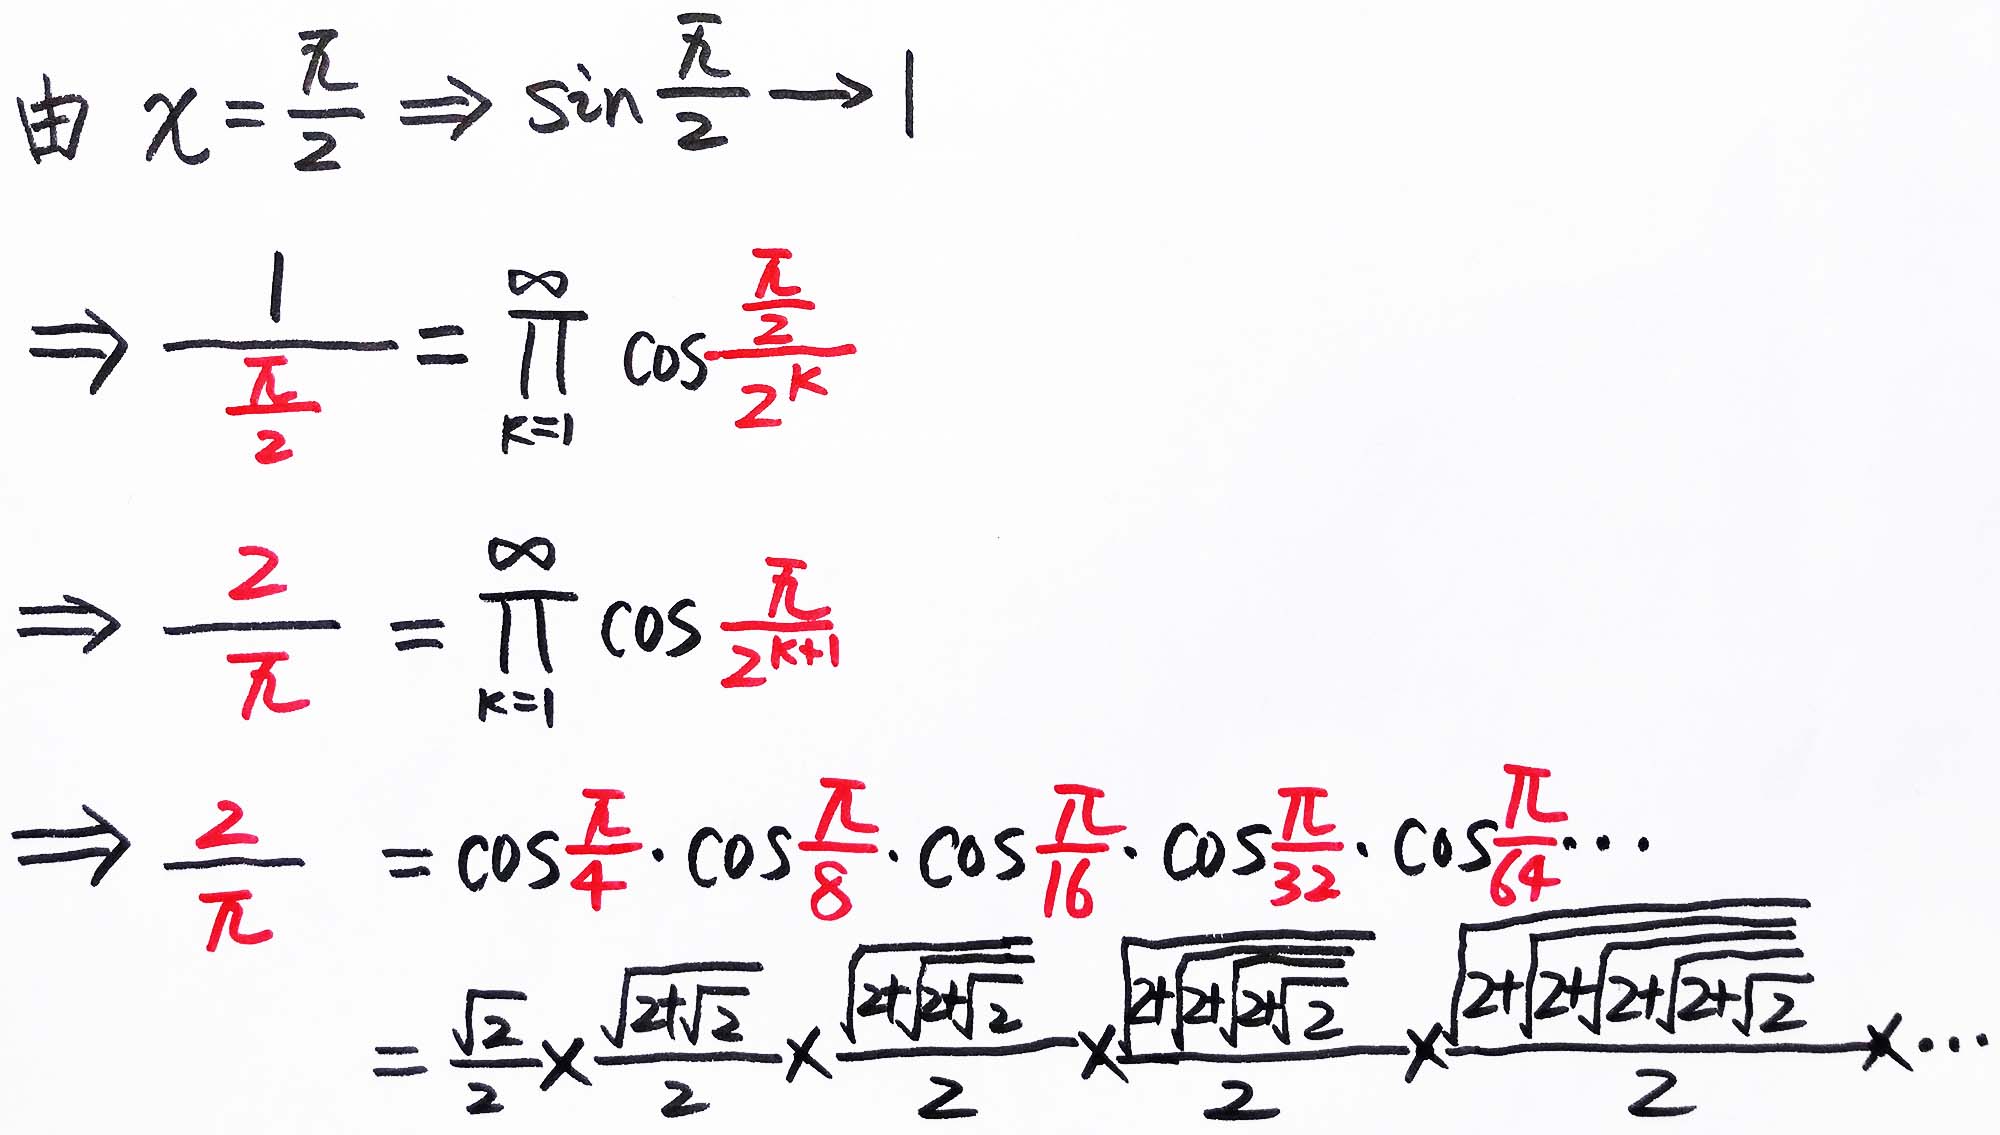 由 x = π/2 ⇒ sin π/2 → 1
⇒ 1/(π/2) = ∏_{k=1}^{∞} cos (π/2)/2^k
⇒ 2/π = ∏_{k=1}^{∞} cos π/2^{k+1}
⇒ 2/π = cos π/4 · cos π/8 · cos π/16 · cos π/32 · cos π/64 ···
= √2/2 × √(2+√2)/2 × √(2+√(2+√2))/2 × √(2+√(2+√(2+√2)))/2 × √(2+√(2+√(2+√(2+√2))))/2 × ···